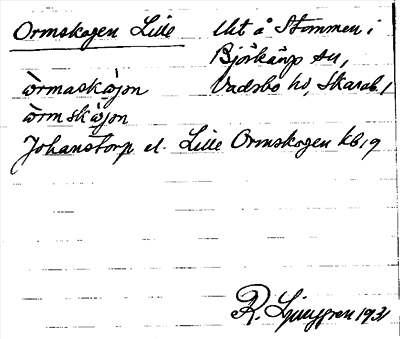 Ormskogen Lille
Utä å Stommen i
Björkängs sn,
Vadsbo hd, Skarab. l
ɷrmaskɷjən
ɷrmskɷjən
Johanstorp el. Lille Ormskogen kb, 9
R. Ljunggren 1931